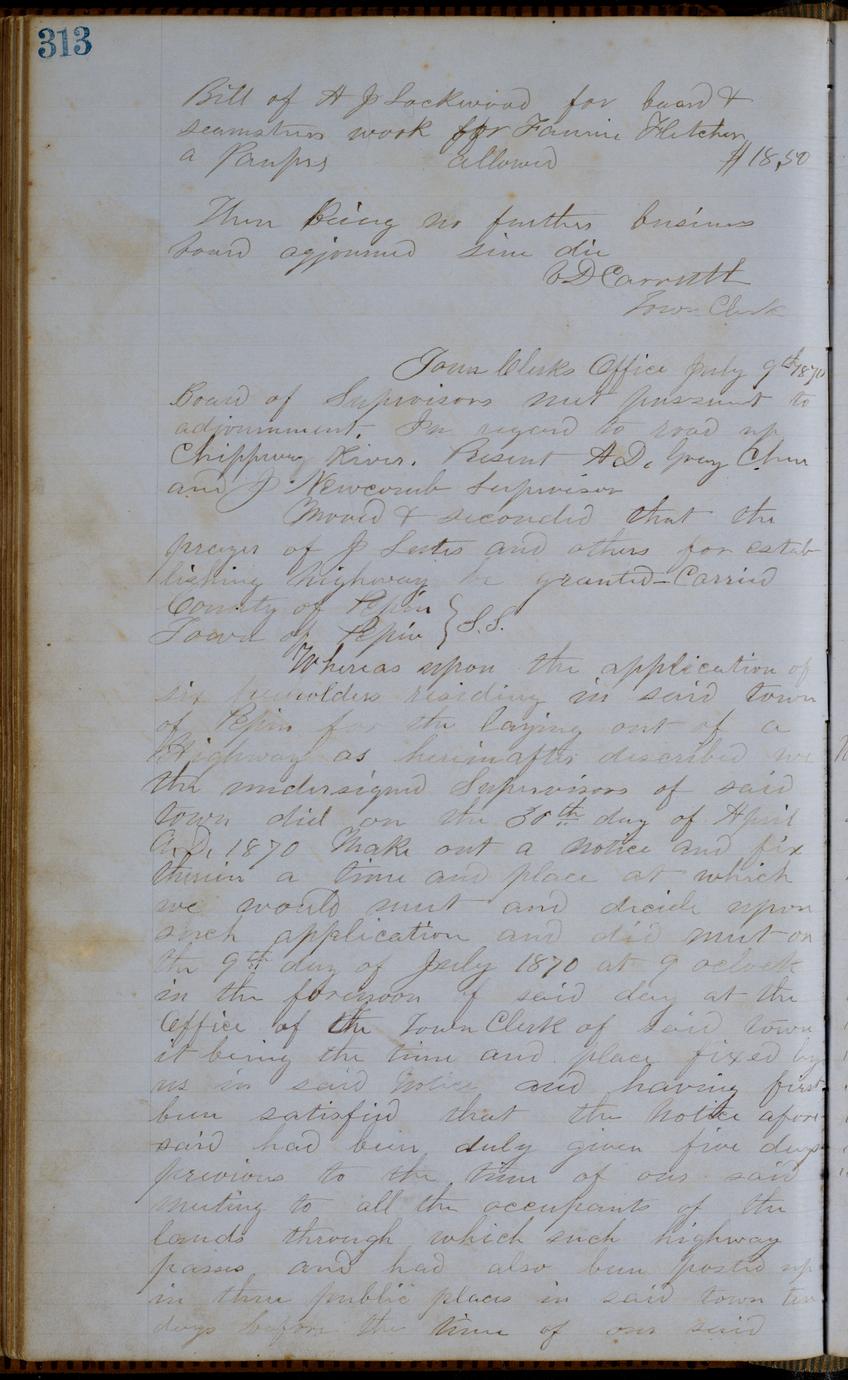 313
Bill of A J Lockwood for board &
seamstress work for Fannie Fletcher
a Paupers allowed $18,50
There being no further business
board agjourned sine die
C D Carruth
Town Clerk
Town Clerks Office July 9th 1870
Board of Supervisors met pursuant to
adjournment. In regard to road up
Chippewa River. Present A. D. Gray Chm
and J. Newcomb Supervisor
Moved & seconded that the
prayer of J and others for estab-
lishing highway be granted - Carried
County of Pepin } S.S.
Town of Pepin
Whereas upon the application of
six freeholders residing in said town
of Pepin for the laying out of a
Highway as hereinafter described we
the undersigned Supervisors of said
town did on the 30th day of April
A.D. 1870 Make out a notice and fix
therein a time and place at which
we would meet and decide upon
such application and did meet on
the 9th day of July 1870 at 9 oclock
in the forenoon of said day at the
Office of the Town Clerk of said town
it being the time and place fixed by
us in said notice and having first
been satisfied that the Notice afore
said had been duly given five days
previous to the time of our said
meeting to all the occupants of the
lands through which such highway
passes and had also been posted up
in three public places in said town ten
days before the time of our said